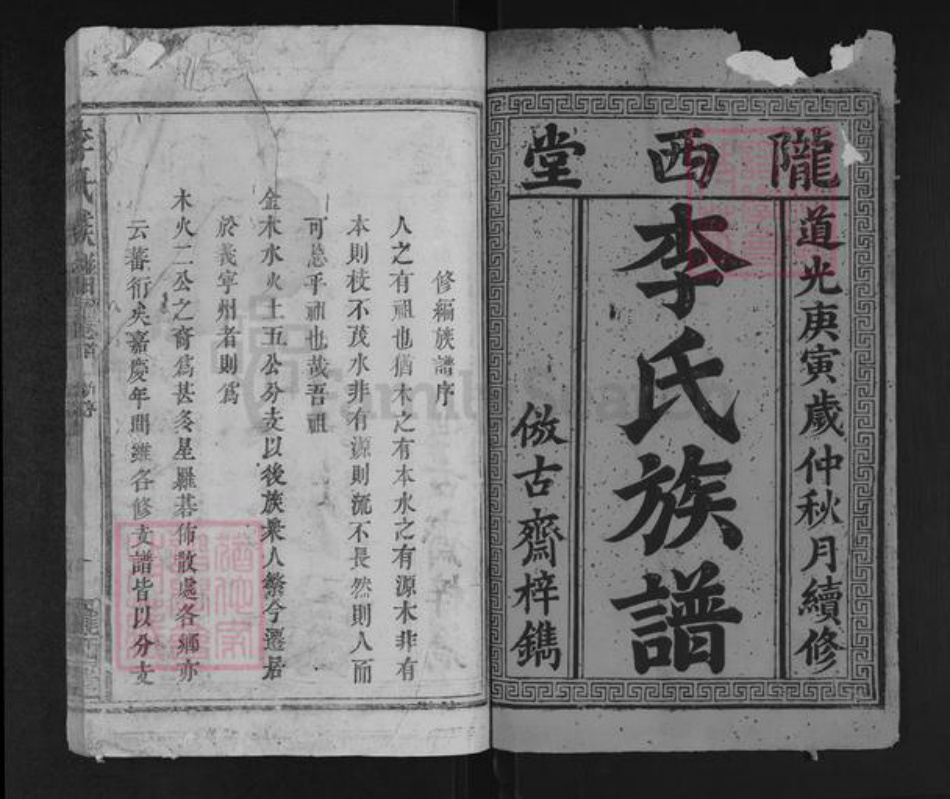 隴西堂
道光庚寅歲仲秋月續修
李氏族譜
倣古齋梓鐫
修編族譜序
人之有祖也猶木之有本水之有源木非有
本則枝不茂水非有源則流不長然則人而
可忘乎祖也哉吾祖
金木水火土五公分支以後族衆人繁今遷居
於義寧州者則爲
木火二公之裔爲甚冬星羅碁佈散處各鄉亦
云蕃衍矣嘉慶年間雖各修支譜皆以分支
李氏族譜